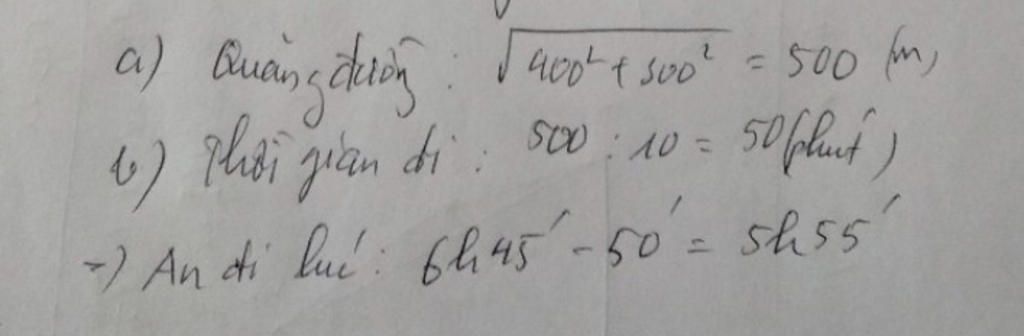 a) Quảng đường : √400² + 300² = 500 (m)
b) Thời gian đi : 500 : 10 = 50 (phút)
-) An đi lúc : 6h45' - 50' = 5h55'